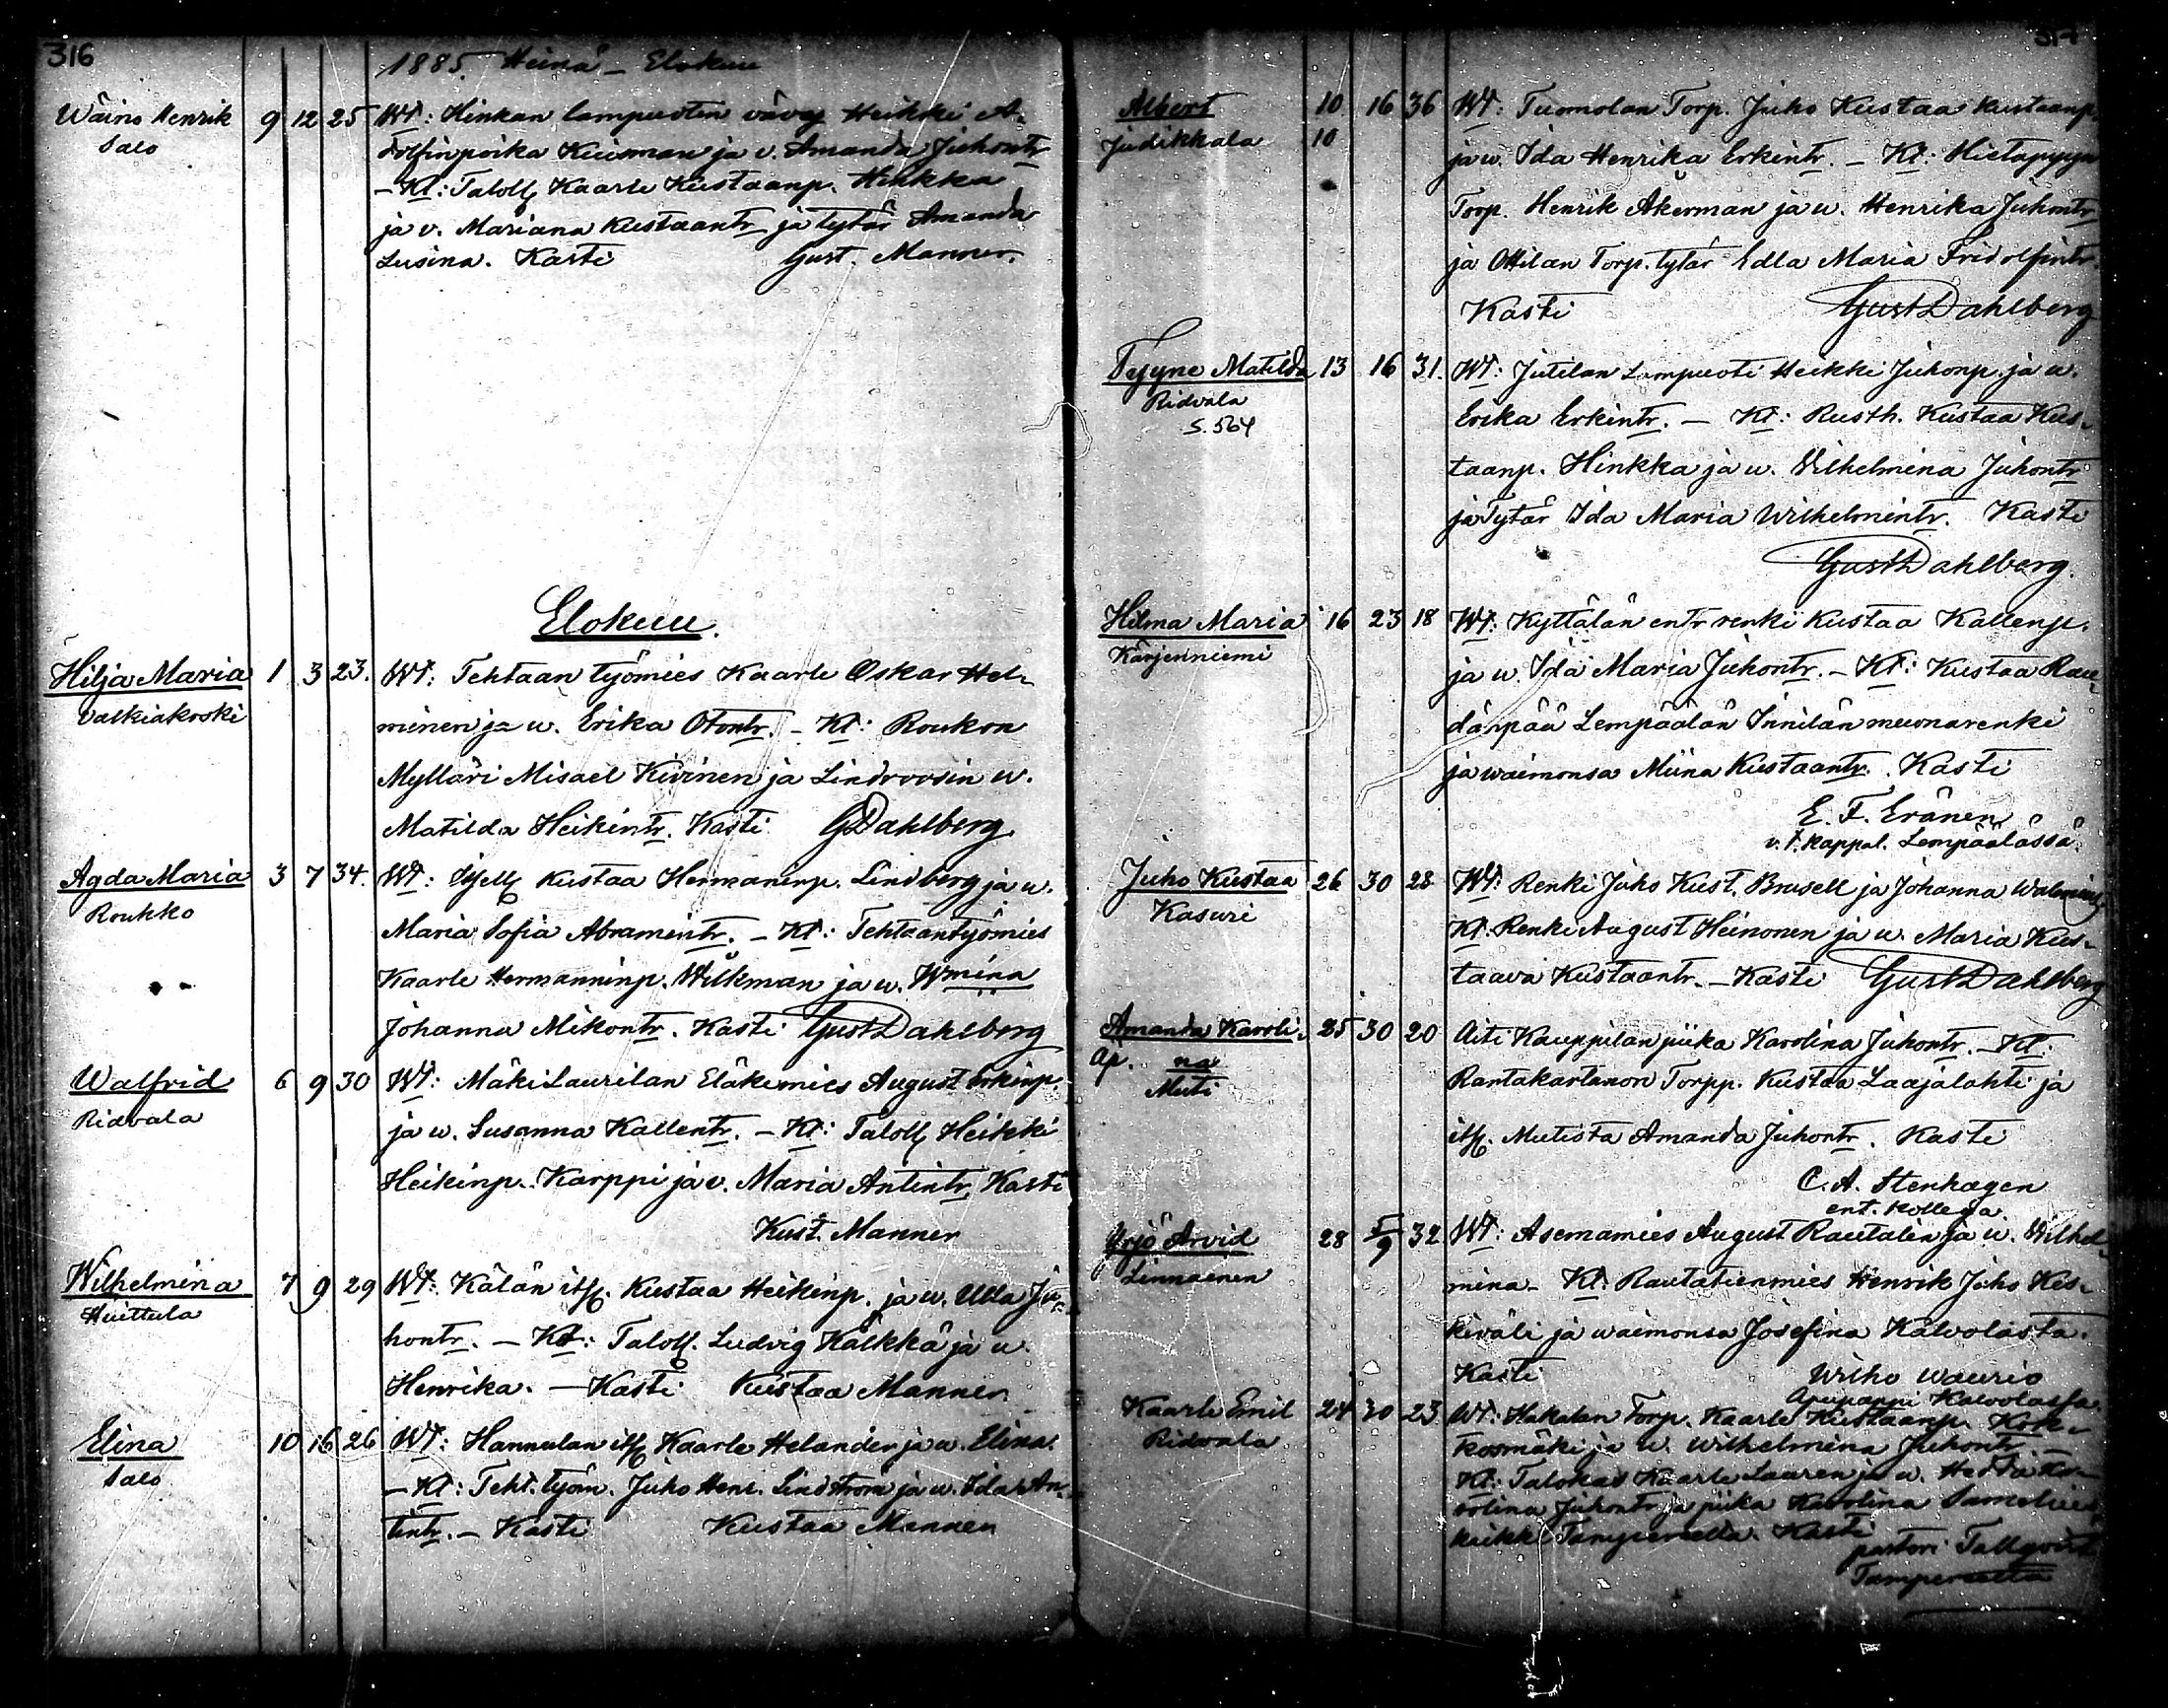 316
1885. Heinä - Elokuu
Wäinö Henrik 9 12 25 Wt: Hinkan lampuotin vävy Heikki A-
Salo dolfinpoika Kuisman ja v. Amanda Juhontr
- Kt: Taloll. Kaarle Kustaanp. Hinkka
ja v. Mariana Kustaantr ja tytär Amanda
Lusina. Kasti Gust. Manner.
Elokuu.
Hilja Maria 1 3 23. Wt: Tehtaan työmies Kaarle Oskar Hel-
Valkiakoski minen ja w. Erika Otontr. - Kt: Roukon
Mylläri Misael Kivinen ja Lindroosin w.
Matilda Heikintr. Kasti GDahlberg.
Agda Maria 3 7 34. Wt: Kustaa Hermaninp. Lindberg ja w.
Roukko Maria Sofia Abramintr. - Kt: Tehtaantyömies
Kaarle Hermanninp. Wilkman ja w. Wmina
Johanna Mikontr. Kasti Gust Dahlberg
Walfrid 6 9 30 Wt: MäkiLaurilan Eläkemies August Erkinp.
Ridvala ja w. Susanna Kallentr. - Kt: Taloll. Heikki
Heikinp. Karppi ja v. Maria Antintr. Kasti
Kust. Manner
Wilhelmina 7 9 29 Wt: Kälän itsl. Kustaa Heikinp. ja w. Ulla Ju-
Huittula hontr. - Kt: Taloll. Ludvig Kälkkä ja w.
Henrika. - Kasti Kustaa Manner.
Elina 10 16 26 Wt: Hannulan itsl. Kaarle Helander ja w. Elina.
Salo - Kt: Teht. työm. Juho Henr. Lindström ja w. Ida An-
tintr. - Kasti Kustaa Manner
317
Albert 10 16 36 Wt: Tuomolan Torp. Juho Kustaa Kustaanp.
Judikkala 10 ja w. Ida Henrika Erkintr. - Kt: Hietapyyn
Torp. Henrik Åkerman ja w. Henrika Juhontr
ja Ottilan Torp. tytär Edla Maria Fridolfintr.
Kasti Gust Dahlberg
Tyyne Matilda 13 16 31. Wt: Jutilan Lampuoti Heikki Juhonp. ja w.
Ridvala Erika Erkintr. - Kt: Rusth. Kustaa Kus-
S. 564 taanp. Hinkka ja w. Vilhelmina Juhontr
ja Tytär Ida Maria Wilhelmintr. Kasti
Gust Dahlberg.
Hilma Maria 16 23 18 Wt: Kyttälän entr renki Kustaa Kallenp.
Kärjenniemi ja w. Ida Maria Juhontr. - Kt: Kustaa Rau-
danpää Lempäälän Innilän muonarenki
ja waimonsa Miina Kustaantr. Kasti
E. F. Eränen
v. t. kappal. Lempäälässä.
Juho Kustaa 26 30 28 Wt: Renki Juho Kust. Brusell ja Johanna
Kasuri Kt: Renki August Heinonen ja w. Maria Kus-
taava Kustaantr. - Kasti Gust Dahlberg
Amanda Karoli- 25 30 20 Äiti Kauppilan piika Karolina Juhontr. - Kt:
äp. na Rantakartanon Torpp. Kustaa Laajalahti ja
Muti itsl. Mutista Amanda Juhontr. Kasti
C. A. Stenhagen
ent. kollega
Yrjö Arvid 28 5/9 32 Wt: Asemamies August Rautalin ja w. Wilhel-
Linnainen mina - Kt: Rautatienmies Henrik Juho Kes-
kiväli ja waimonsa Josefina Kalvolasta.
Kasti Wilho Waurio
Apupappi Kalvolassa.
Kaarle Emil 24 30 23 Wt: Hakalan Torp. Kaarle Kustaanp. Kor-
Ridvala kosmäki ja w. Wilhelmina Juhontr. -
Kt: Talokas Kaarle Lauren ja w. Hedda Ka-
rolina Juhontr ja piika Karolina
kaikki Tampereella. Kasti
pastori Tallqvist
Tampereella